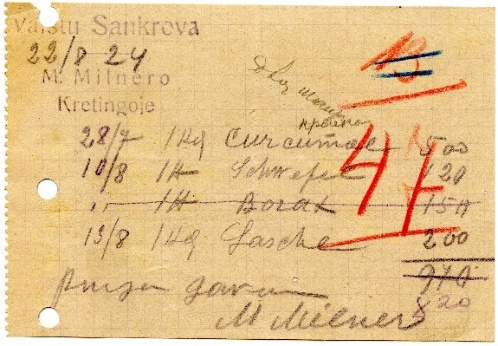 Vaistu Sankrova
22/8 24
M. Milnero
Kretingoje
13
28/7 1 Kg Curcumae 500
10/8 1 H Schwefel 120
" 1 H Borax 150
13/8 1 Kg Lasche 200
47
910
820
M Milner